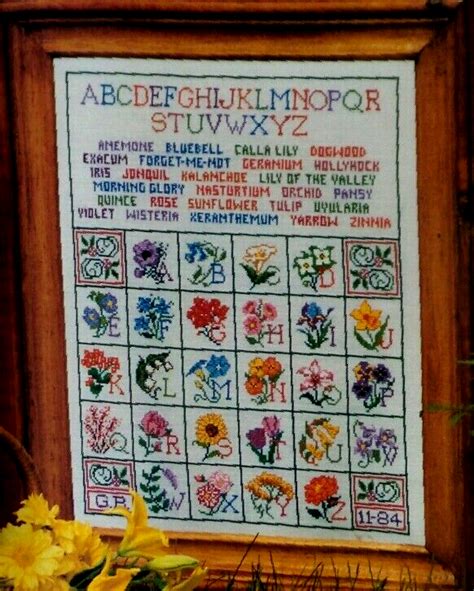 ABCDEFGHIJKLMNOPQR
STUVWXYZ
ANEMONE BLUEBELL CALLA LILY DOGWOOD
EXACUM FORGET-ME-NOT GERANIUM HOLLYHOCK
IRIS JONQUIL KALANCHOE LILY OF THE VALLEY
MORNING GLORY NASTURTIUM ORCHID PANSY
QUINCE ROSE SUNFLOWER TULIP UVULARIA
VIOLET WISTERIA XERANTHEMUM YARROW ZINNIA
A B C D
E F G H I J
K L M N O P
Q R S T U V
G.P. W X Y Z 11-84